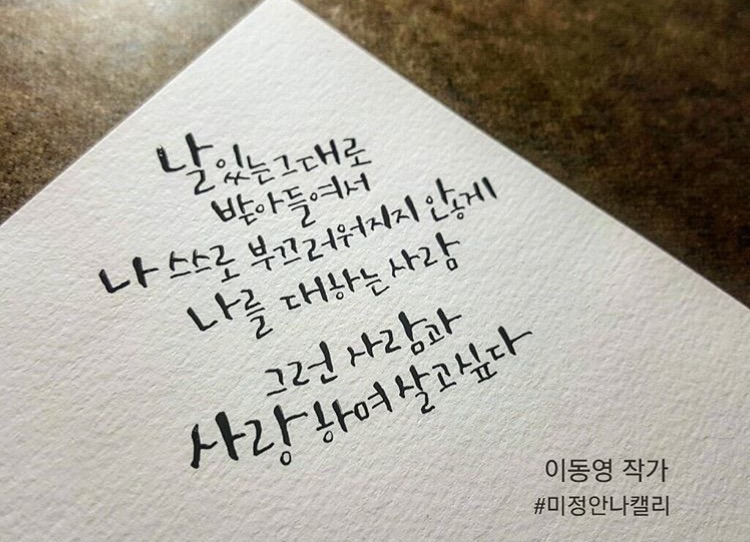 날 있는 그대로
받아들여서
나 스스로 부끄러워지지 않게
나를 대하는 사람
그런 사람과
사랑하며 살고싶다
이동영 작가
#미정안나캘리